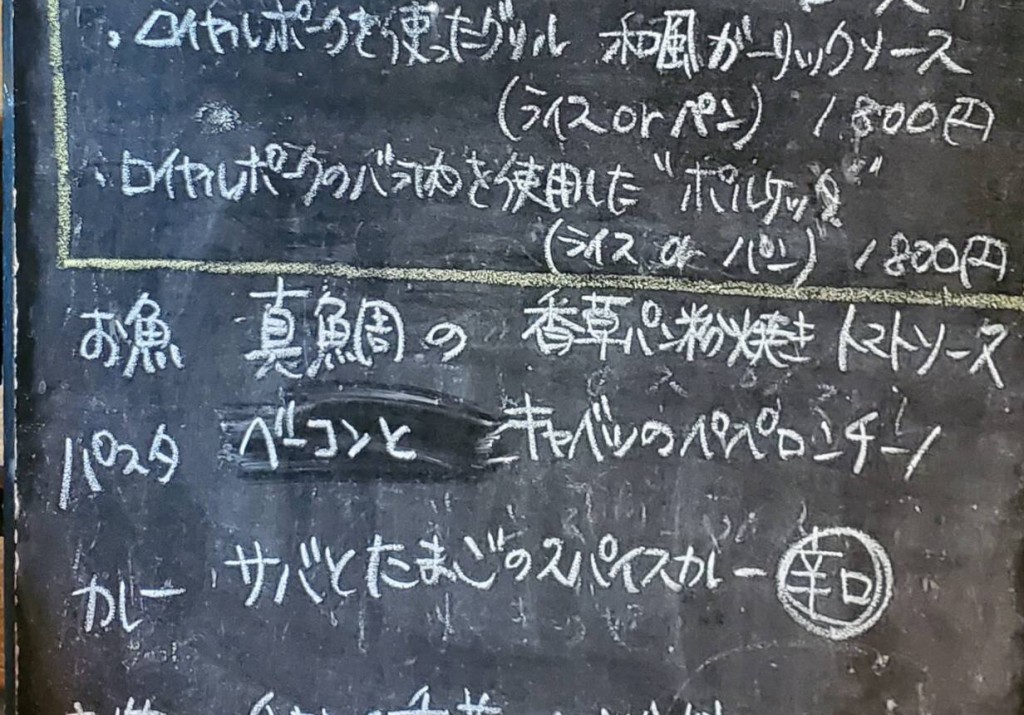 ・ロイヤルポークを使ったグリル 和風ガーリックソース
(ライス or パン) 1800円
・ロイヤルポークのバラ肉を使用した "ポルケッタ"
(ライス or パン) 1800円
お魚 真鯛の 香草パン粉焼き トマトソース
パスタ ベーコンと キャベツのペペロンチーノ
カレー サバとたまごのスパイスカレー 辛口